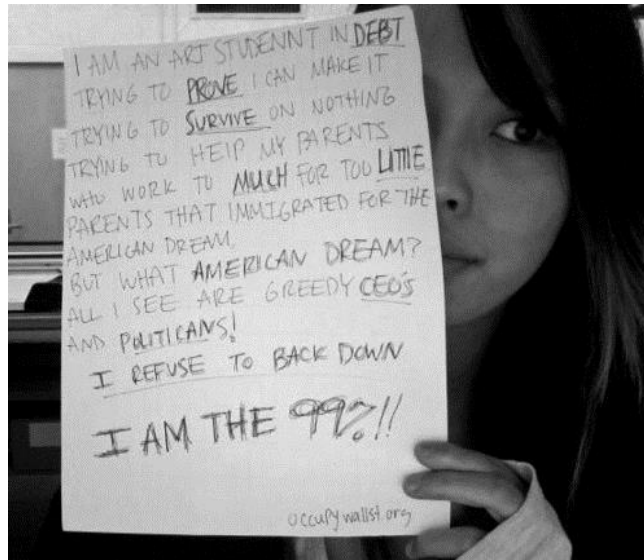 I AM AN ART STUDENNT IN DEBT
TRYING TO PROVE I CAN MAKE IT
TRYING TO SURVIVE ON NOTHING
TRYING TO HElP MY PARENTS
WHO WORK TO MUCH FOR TOO LITTlE
PARENTS THAT IMMIGRATED FOR THE
AMERICAN DREAM.
BUT WHAT AMERICAN DREAM?
ALL I SEE ARE GREEDY CEO'S
AND POLITICANS!
I REFUSE TO BACK DOWN
I AM THE 99%!!
occupywallst.org